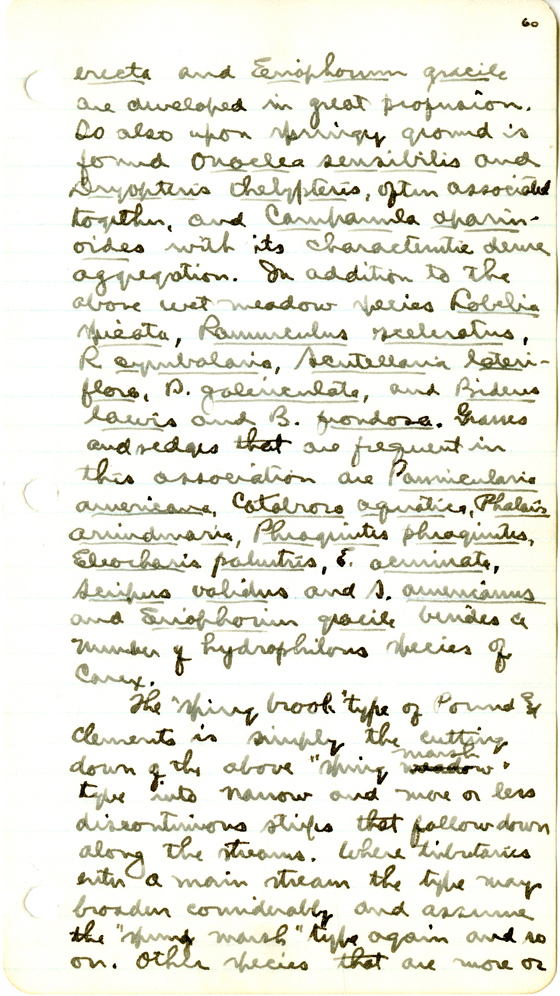 60
erecta and Eriophorum gracile
are developed in great profusion.
So also upon springy ground is
found Onoclea sensibilis and
Dryopteris thelypteris, often associated
together, and Campanula aparin-
oides with its characteristic dense
aggregation. In addition to the
above wet meadow species Lobelia
spicata, Ranunculus sceleratus,
R. cymbalaria, Scutellaria lateri-
flora, S. galericulata, and Bidens
laevis and B. frondosa. Grasses
and sedges that are frequent in
this association are Pannicularia
americana, Catabrosa aquatica, Phalaris
arundinaria, Phragmites phragmites,
Eleocharis palustris, E. acuminata,
Scirpus validus and S. americanus
and Eriophorum gracile besides a
number of hydrophilous species of
Carex.
The "spring brook" type of Pound &
Clements is simply the cutting
down of the above "spring meadow marsh"
type into narrow and more or less
discontinuous strips that follow down
along the streams. Where tributaries
enter a main stream the type may
broaden considerably and assume
the "spring marsh" type again and so
on. Other species that are more or